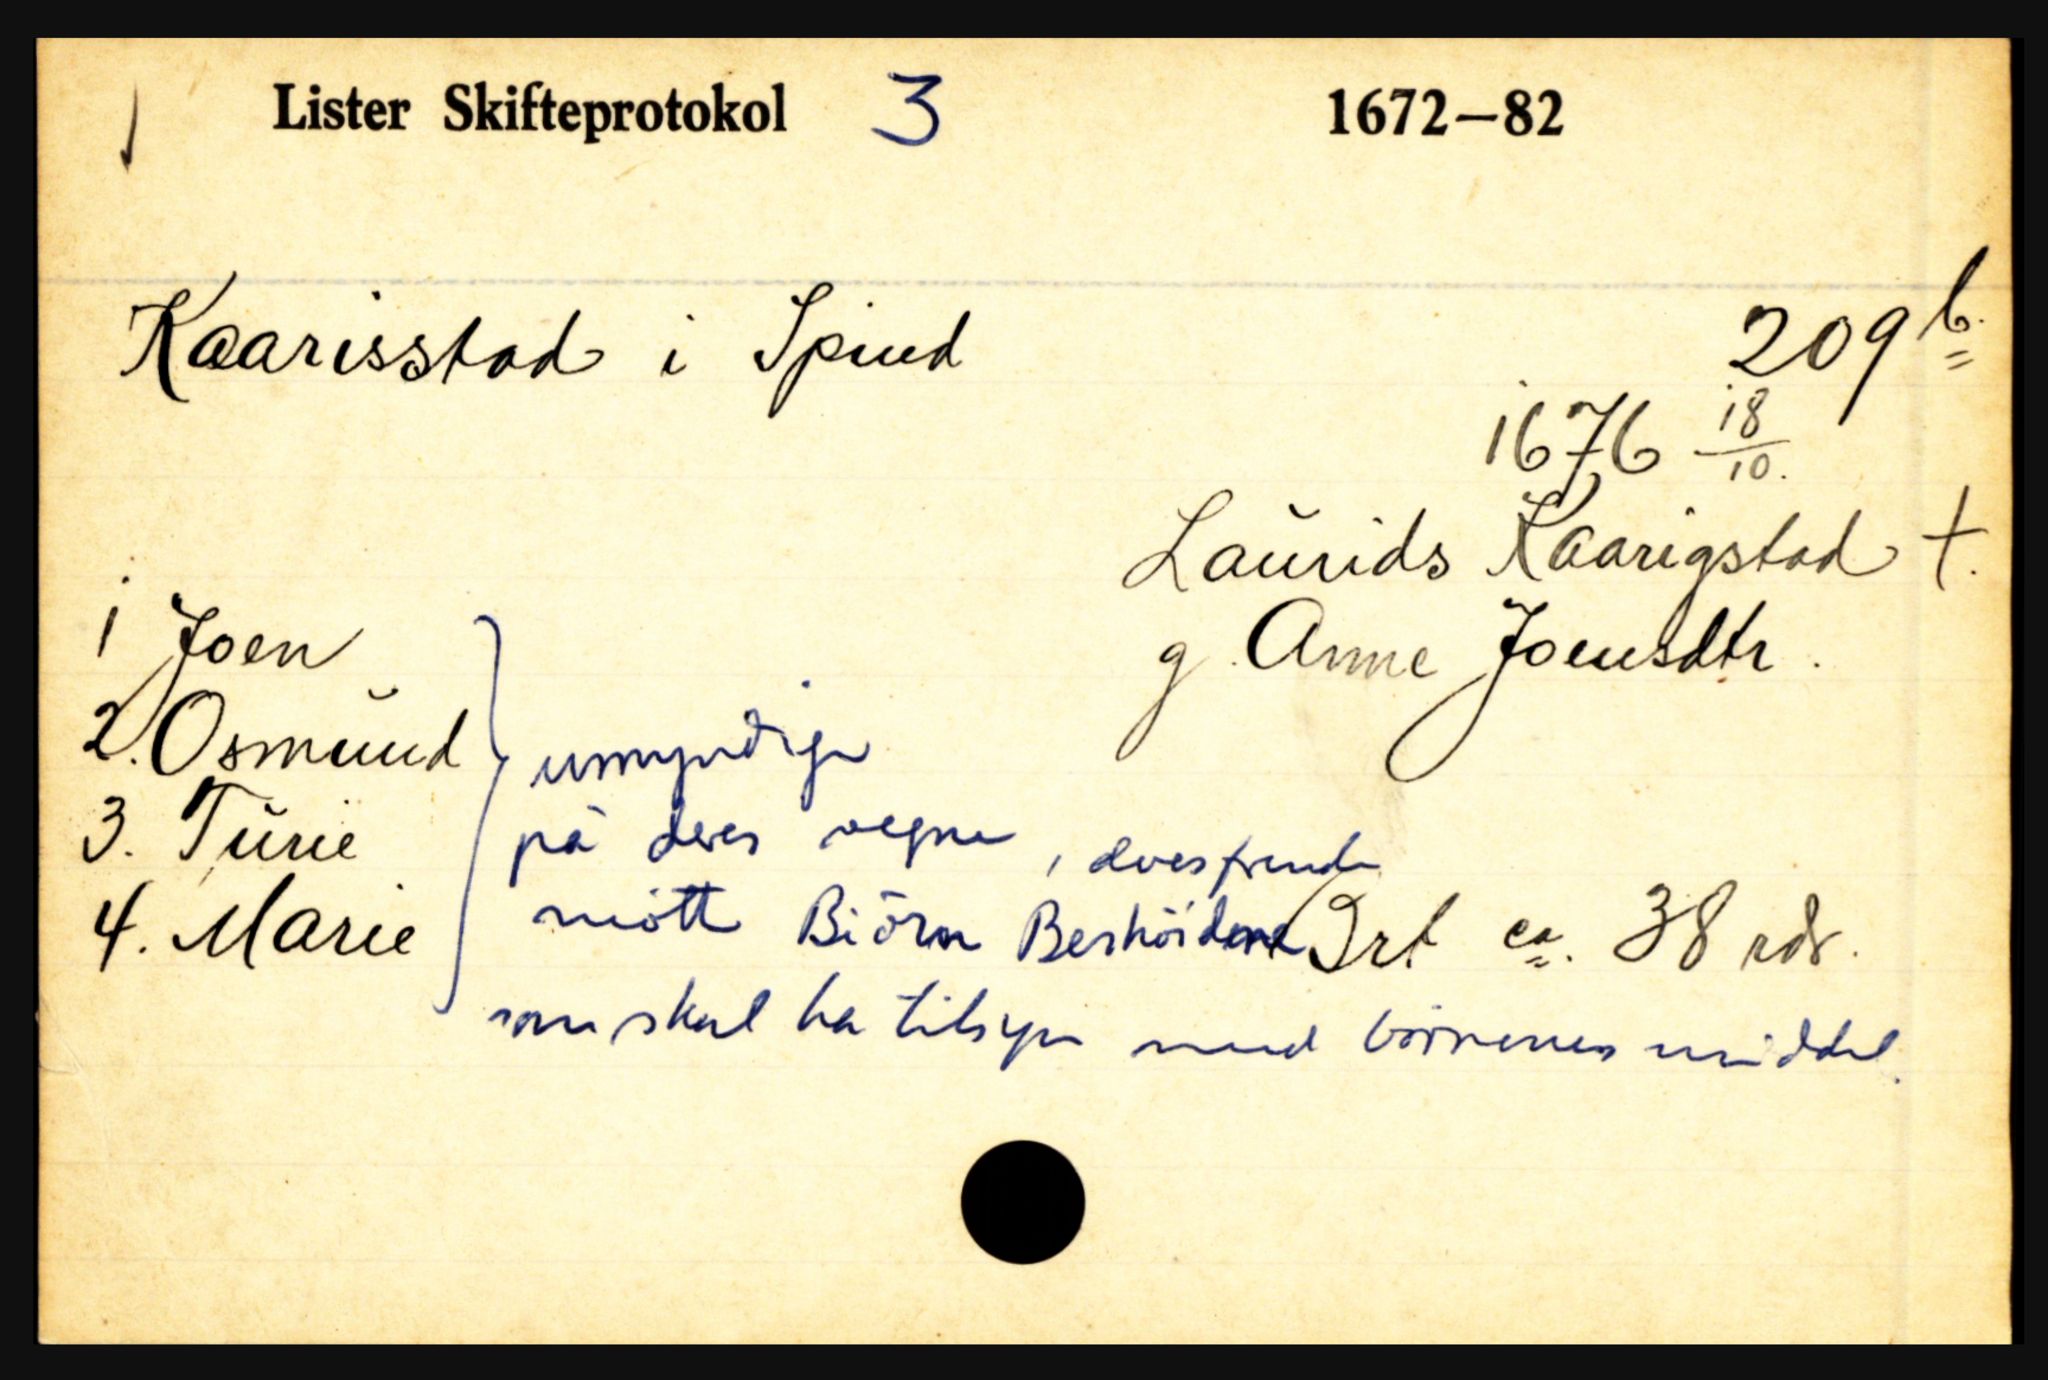 Lister Skifteprotokol 3 1672—82
Kaarisstad i Spind 209 b.
1676 18/10.
Laurids Kaarigstad †.
g. Anne Joensdtr.
1 Joen
2. Osmund
3. Turie
4. Marie
umyndige
på deres vegne,
mött Biörn
Irt ca. 38 rdr.
som skal ha tilsyn med börnenes middel.